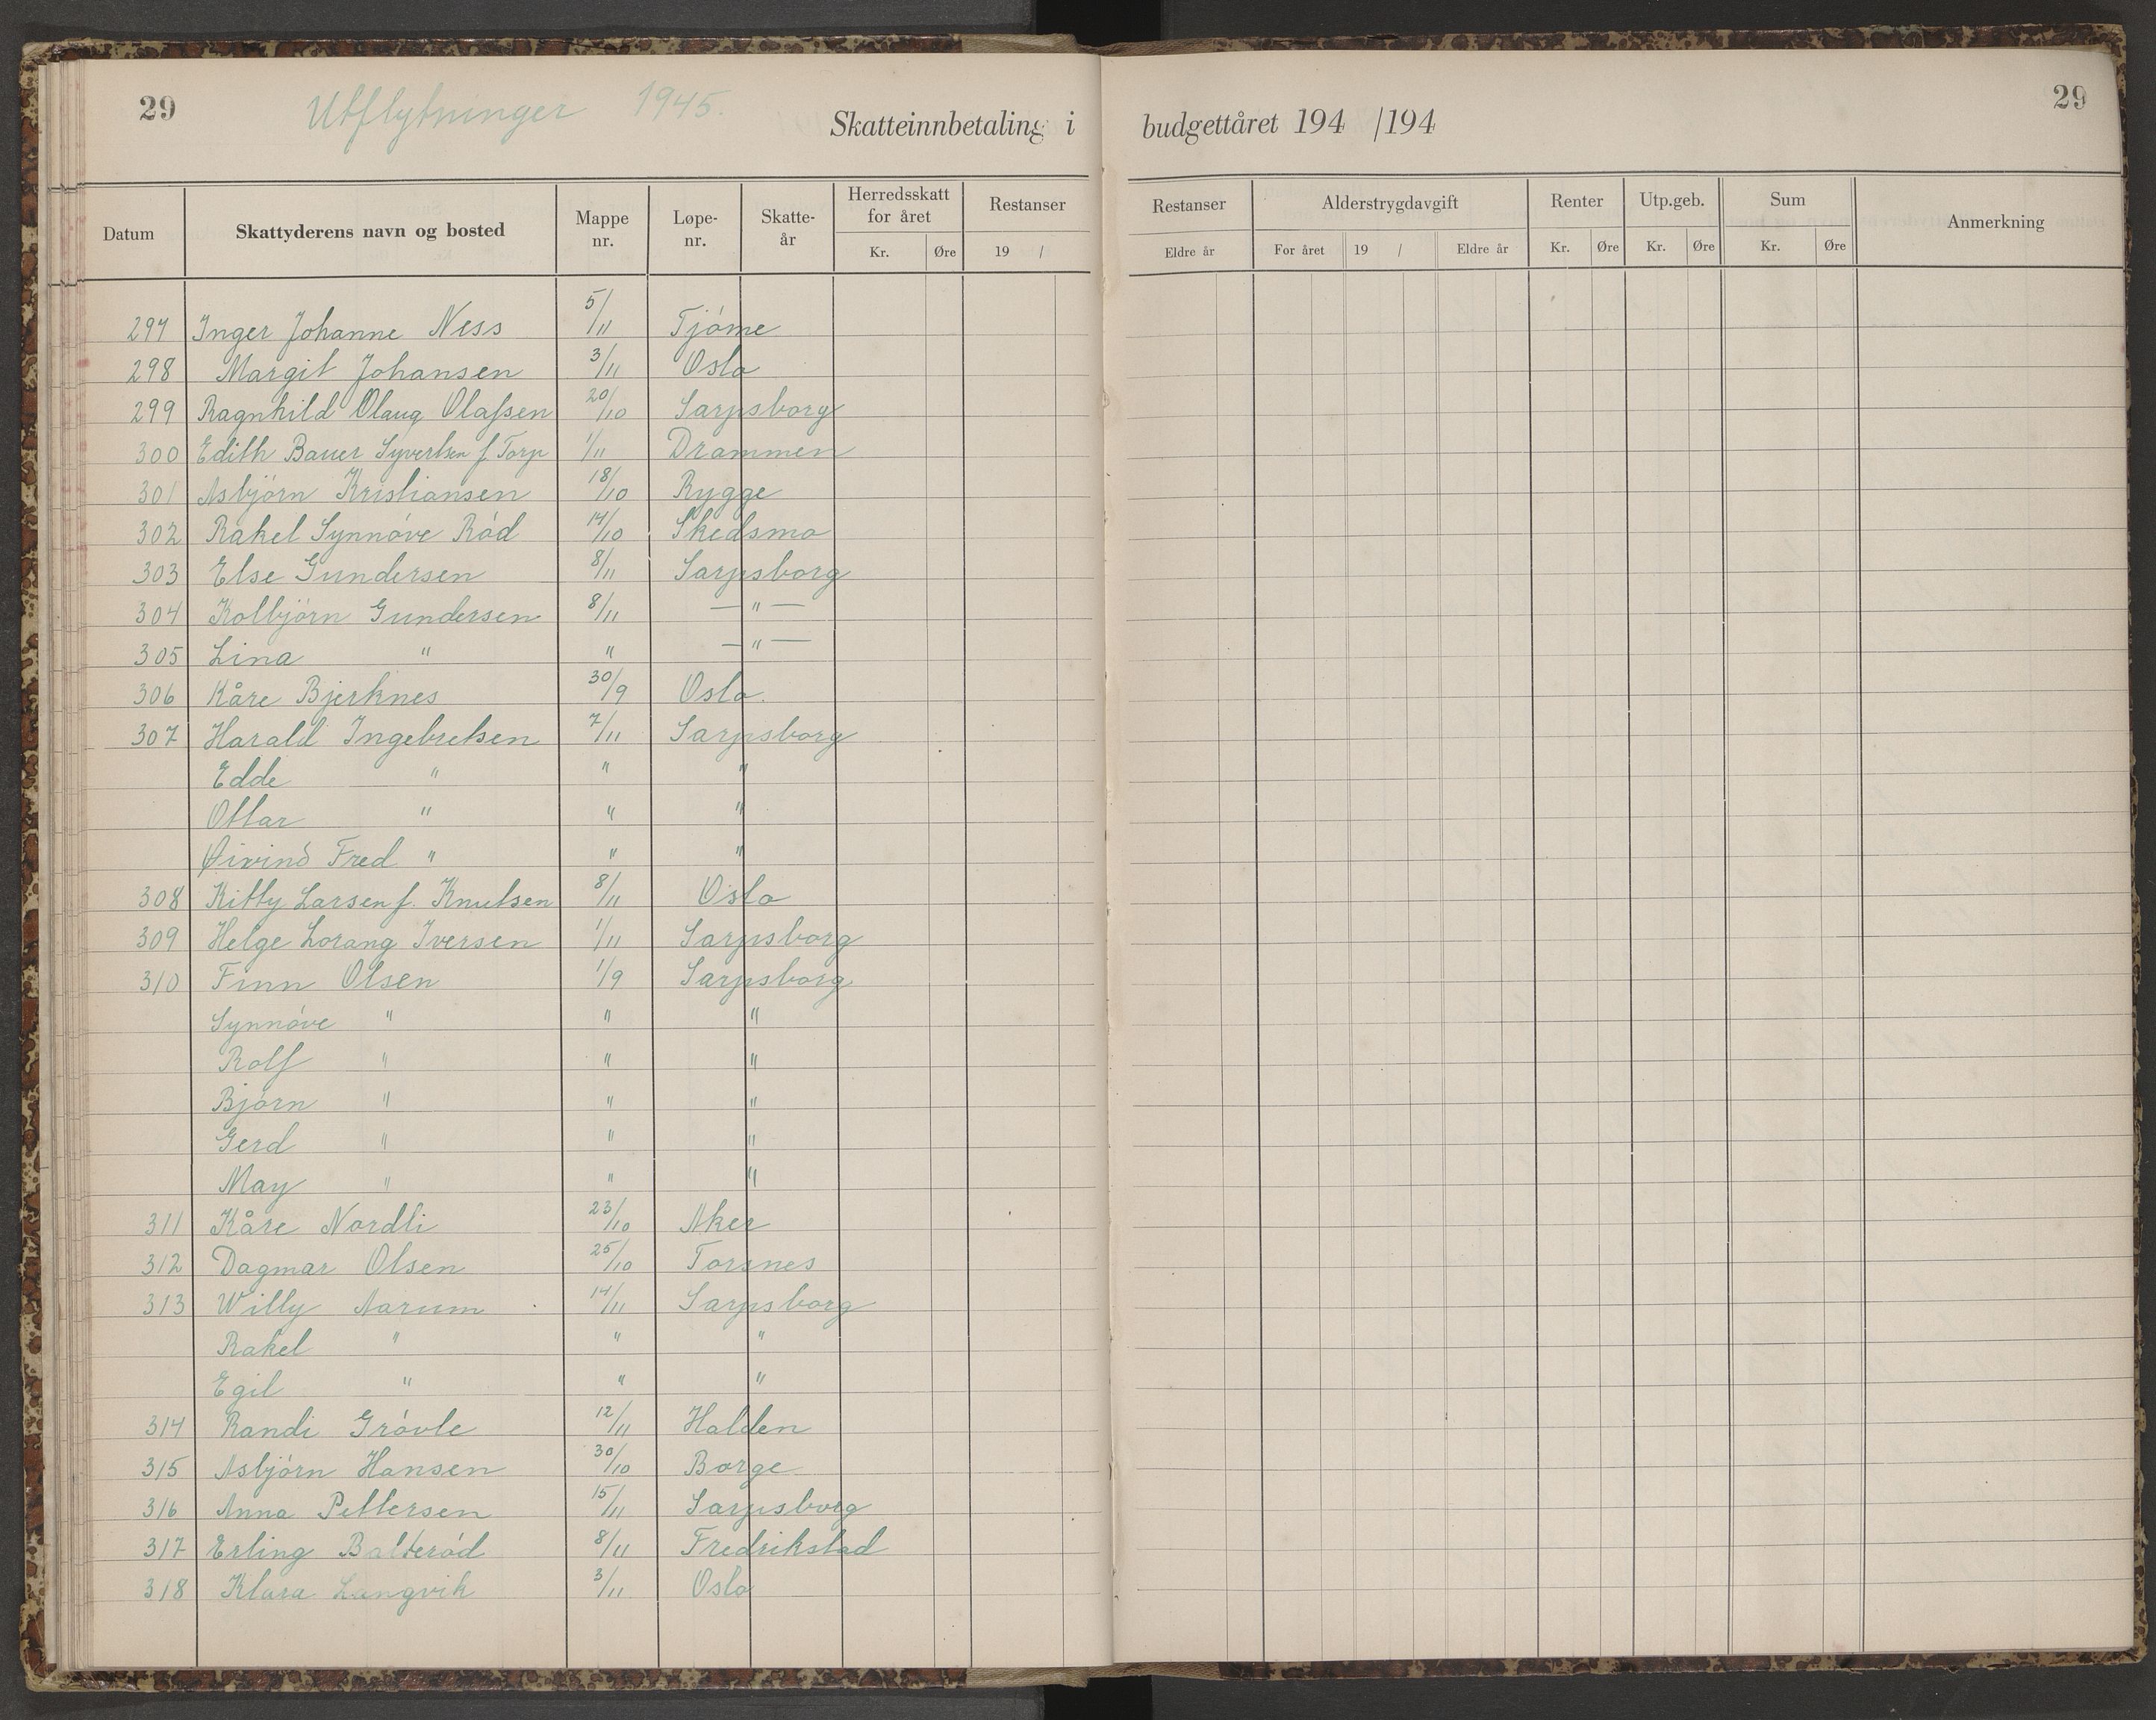 29 Utflytninger 1945. 29
Skatteinnbetaling i budgettåret 194 /194
Datum Skattyderens navn og bosted Mappe nr. Løpe-nr. Skatte-år Herredsskatt for året Kr. Øre Restanser 19 / Restanser Eldre år Alderstrygdavgift For året 19 / Eldre år Renter Kr. Øre Utp.geb. Kr. Øre Sum Kr. Øre Anmerkning
297 Inger Johanne Ness 5/11 Tjöme
298 Margit Johansen 3/11 Oslo
299 Ragnhild Olaug Olafsen 20/10 Sarpsborg
300 Edith Bauer Syvertsen f. Torp 1/11 Drammen
301 Asbjörn Kristiansen 18/10 Rygge
302 Rakel Synnöve Röd 14/10 Skedsmo
303 Else Gundersen 8/11 Sarpsborg
304 Kolbjörn Gundersen 8/11 — " —
305 Lina " " — " —
306 Kåre Bjerknes 30/9 Oslo.
307 Harald Ingebretsen 7/11 Sarpsborg
Edde " " "
Ottar " " "
Øivind Fred " " "
308 Kitty Larsen f. Knutsen 8/11 Oslo
309 Helge Lorang Iversen 1/11 Sarpsborg
310 Finn Olsen 1/9 Sarpsborg
Synnöve " " "
Rolf " " "
Björn " " "
Gerd " " "
May " " "
311 Kåre Nordli 23/10 Aker
312 Dagmar Olsen 25/10 Torsnes
313 Willy Aarum 14/11 Sarpsborg
Rakel " " "
Egil " " "
314 Randi Grövle 12/11 Halden
315 Asbjörn Hansen 30/10 Borge
316 Anna Pettersen 15/11 Sarpsborg
317 Erling Balteröd 8/11 Fredrikstad
318 Klara Langvik 3/11 Oslo